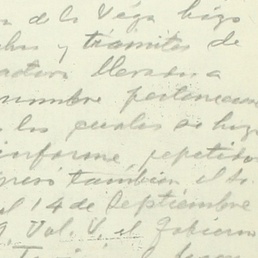 de la Vega hizo
y trámites de
llevan a
nombre pertenecen
los cuales se hizo
informe, repetido
también el
14 de Septiembre
Vol. V, el Gobierno